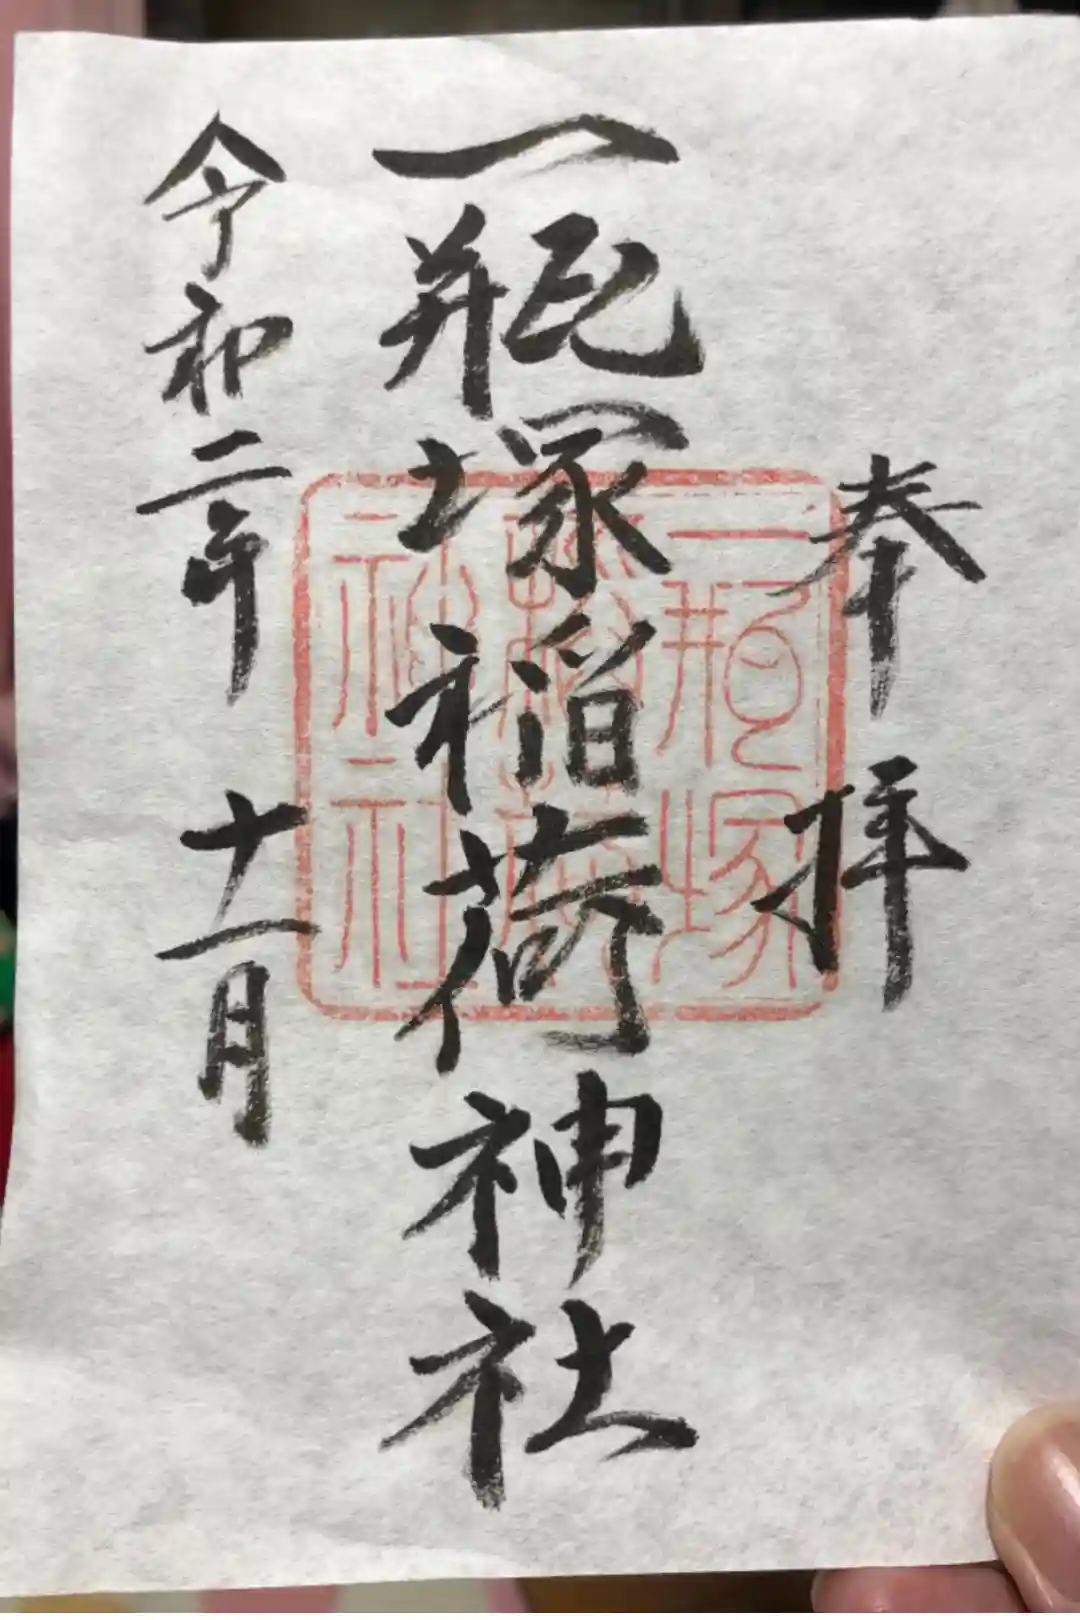 奉拝
一瓶塚稲荷神社
一瓶塚
稲荷
神社
令和二年十一月